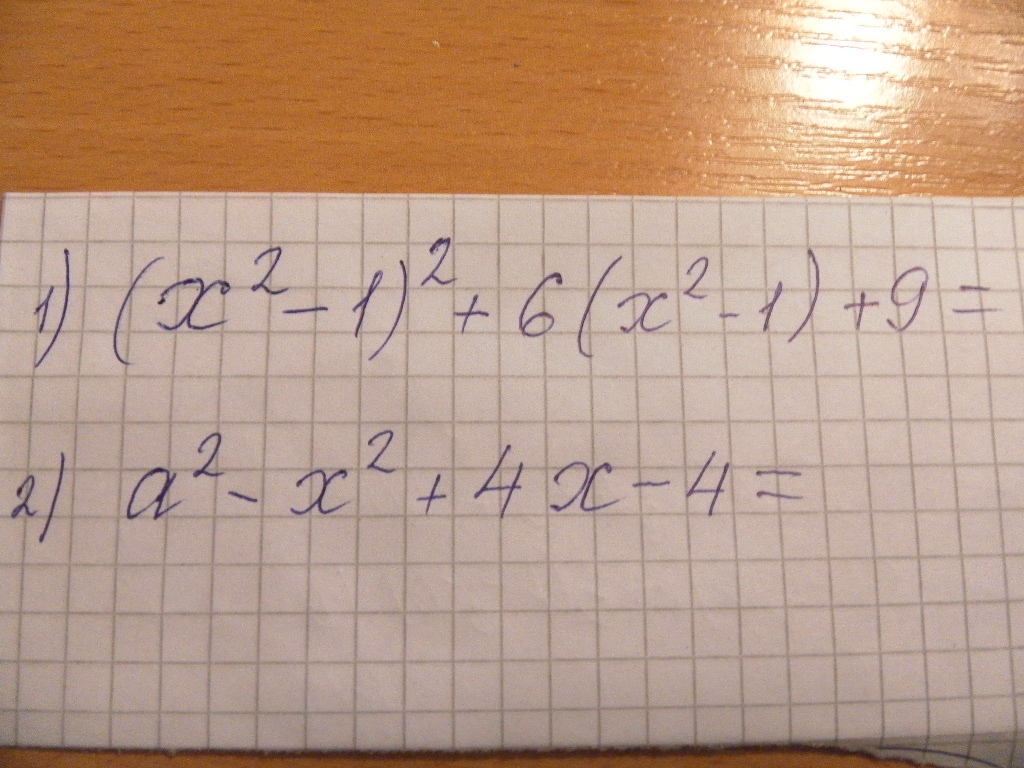 1) (x² - 1)² + 6(x² - 1) + 9 =
2) a² - x² + 4x - 4 =